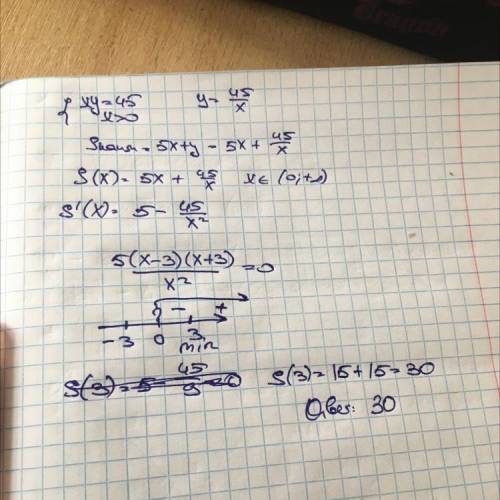 { xy=45 y= 45/x
x>0
Sнаим=5x+y = 5x+ 45/x
S(x)= 5x + 45/x x∈(0;+∞)
S'(x)= 5 - 45/x²
5(x-3)(x+3)/x² =0
- +
-3 0 3
min
S(3)=15+15=30
Ответ: 30